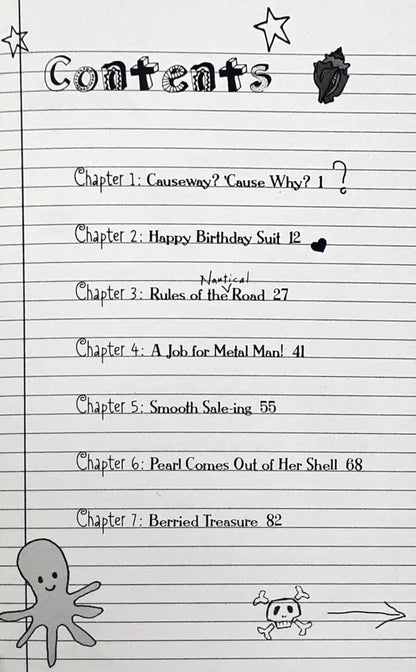 Contents
Chapter 1: Causeway? 'Cause Why? 1 ?
Chapter 2: Happy Birthday Suit 12
Nautical
Chapter 3: Rules of the Road 27
Chapter 4: A Job for Metal Man! 41
Chapter 5: Smooth Sale-ing 55
Chapter 6: Pearl Comes Out of Her Shell 68
Chapter 7: Berried Treasure 82